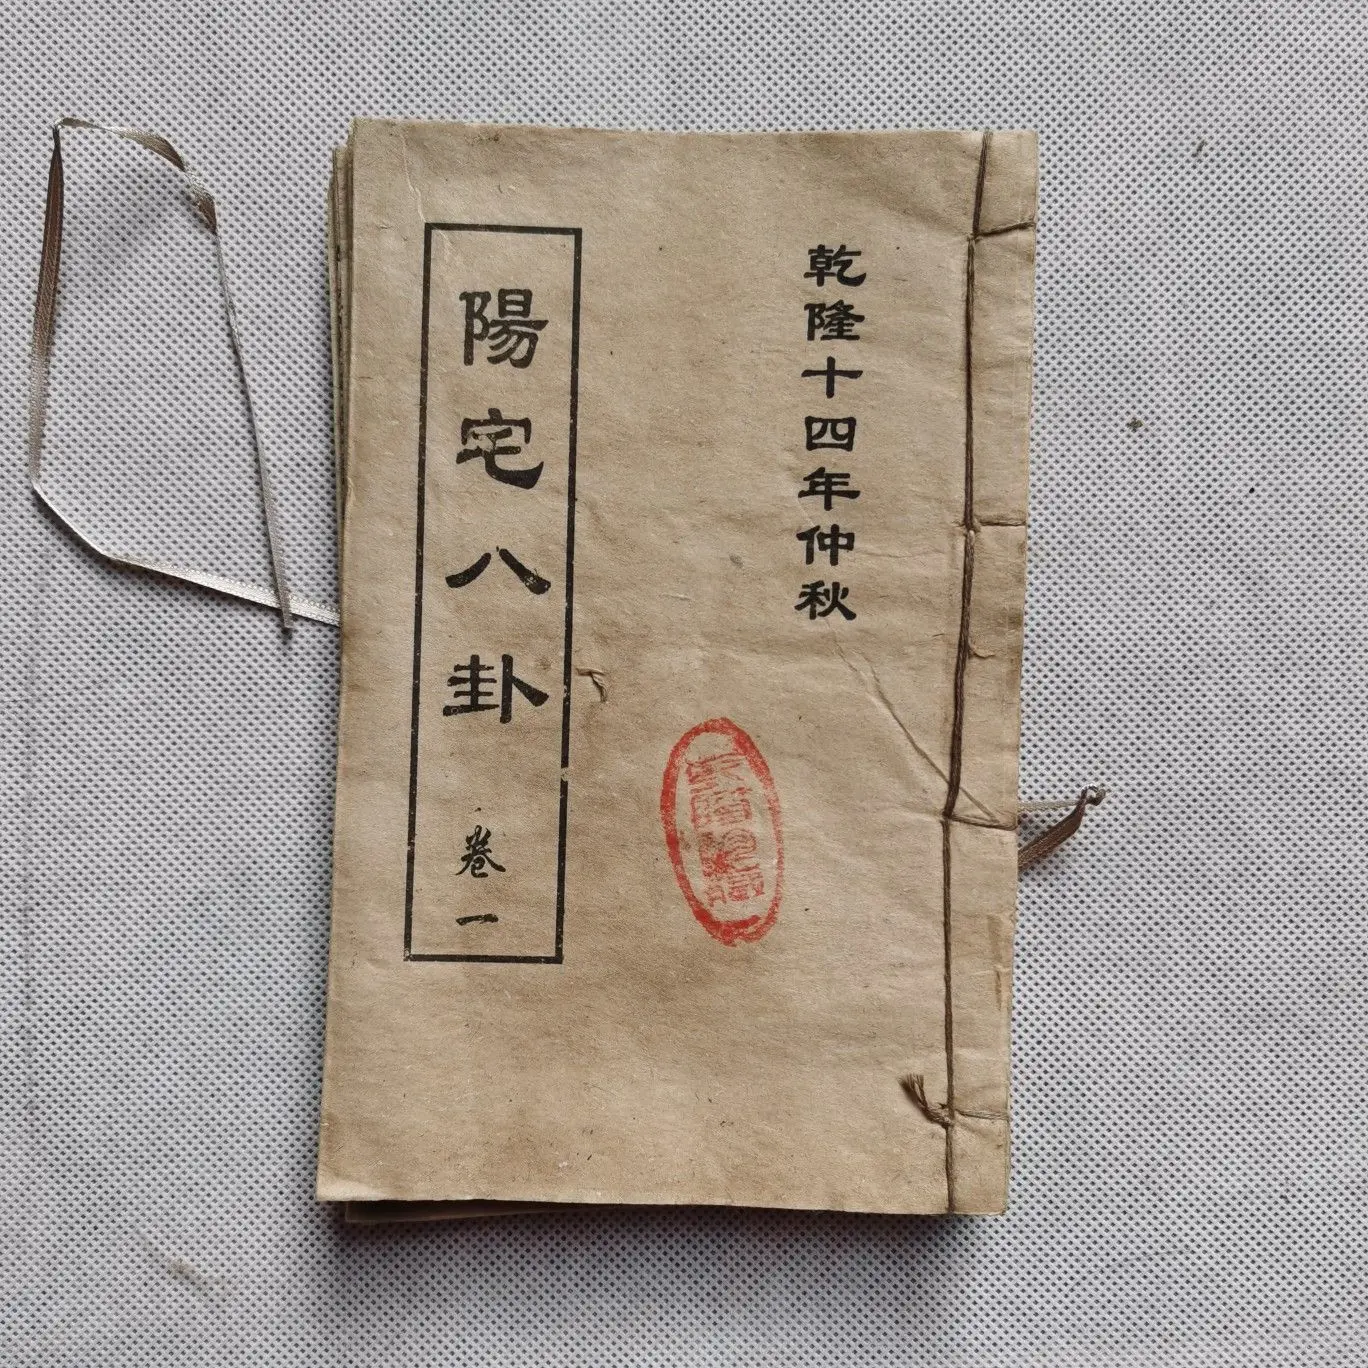 乾隆十四年仲秋
陽宅八卦
卷一